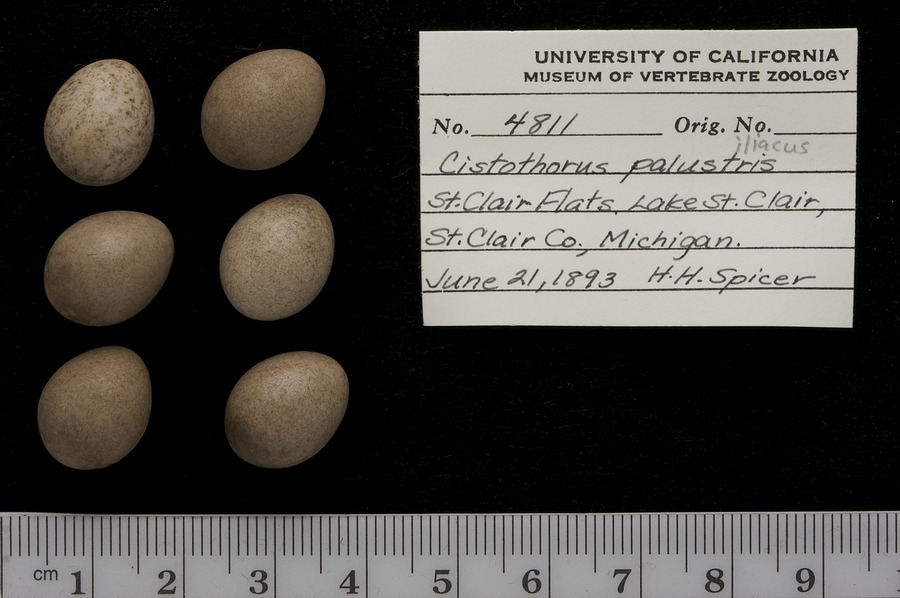 UNIVERSITY OF CALIFORNIA
MUSEUM OF VERTEBRATE ZOOLOGY
No. 4811 Orig. No.
iliacus
Cistothorus palustris
St. Clair Flats, Lake St. Clair,
St. Clair Co., Michigan.
June 21, 1893 H.H. Spicer
cm 1 2 3 4 5 6 7 8 9 1